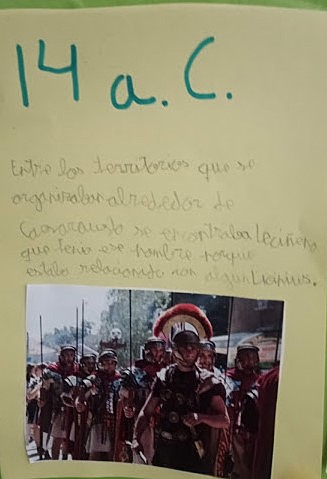 14 a. C.
Entre los territorios que se
organizaban alrededor de
Caesarausta se encontraba Leciñena
que tenia ese nombre porque
estaba relacionado con algun Licinius.